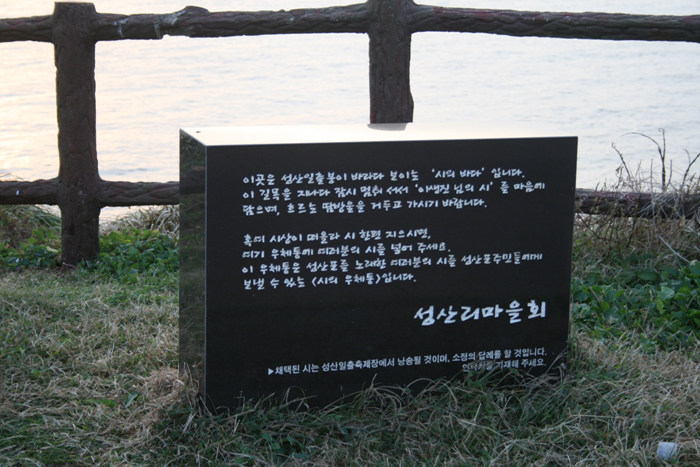 이곳은 성산일출봉이 바라다 보이는 '시의 바다' 입니다.
이 길목을 지나다 잠시 멈춰 서서 '이생진 님의 시' 를 마음에
담으며, 흐르는 땀방울을 거두고 가시기 바랍니다.
혹여 시상이 떠올라 시 한편 지으시면,
여기 우체통에 여러분의 시를 넣어 주세요.
이 우체통은 성산포를 노래한 여러분의 시를 성산포주민들에게
보낼 수 있는 <시의 우체통>입니다.
성산리마을회
▶채택된 시는 성산일출축제장에서 낭송될 것이며, 소정의 답례를 할 것입니다.
연락처를 기재해 주세요.